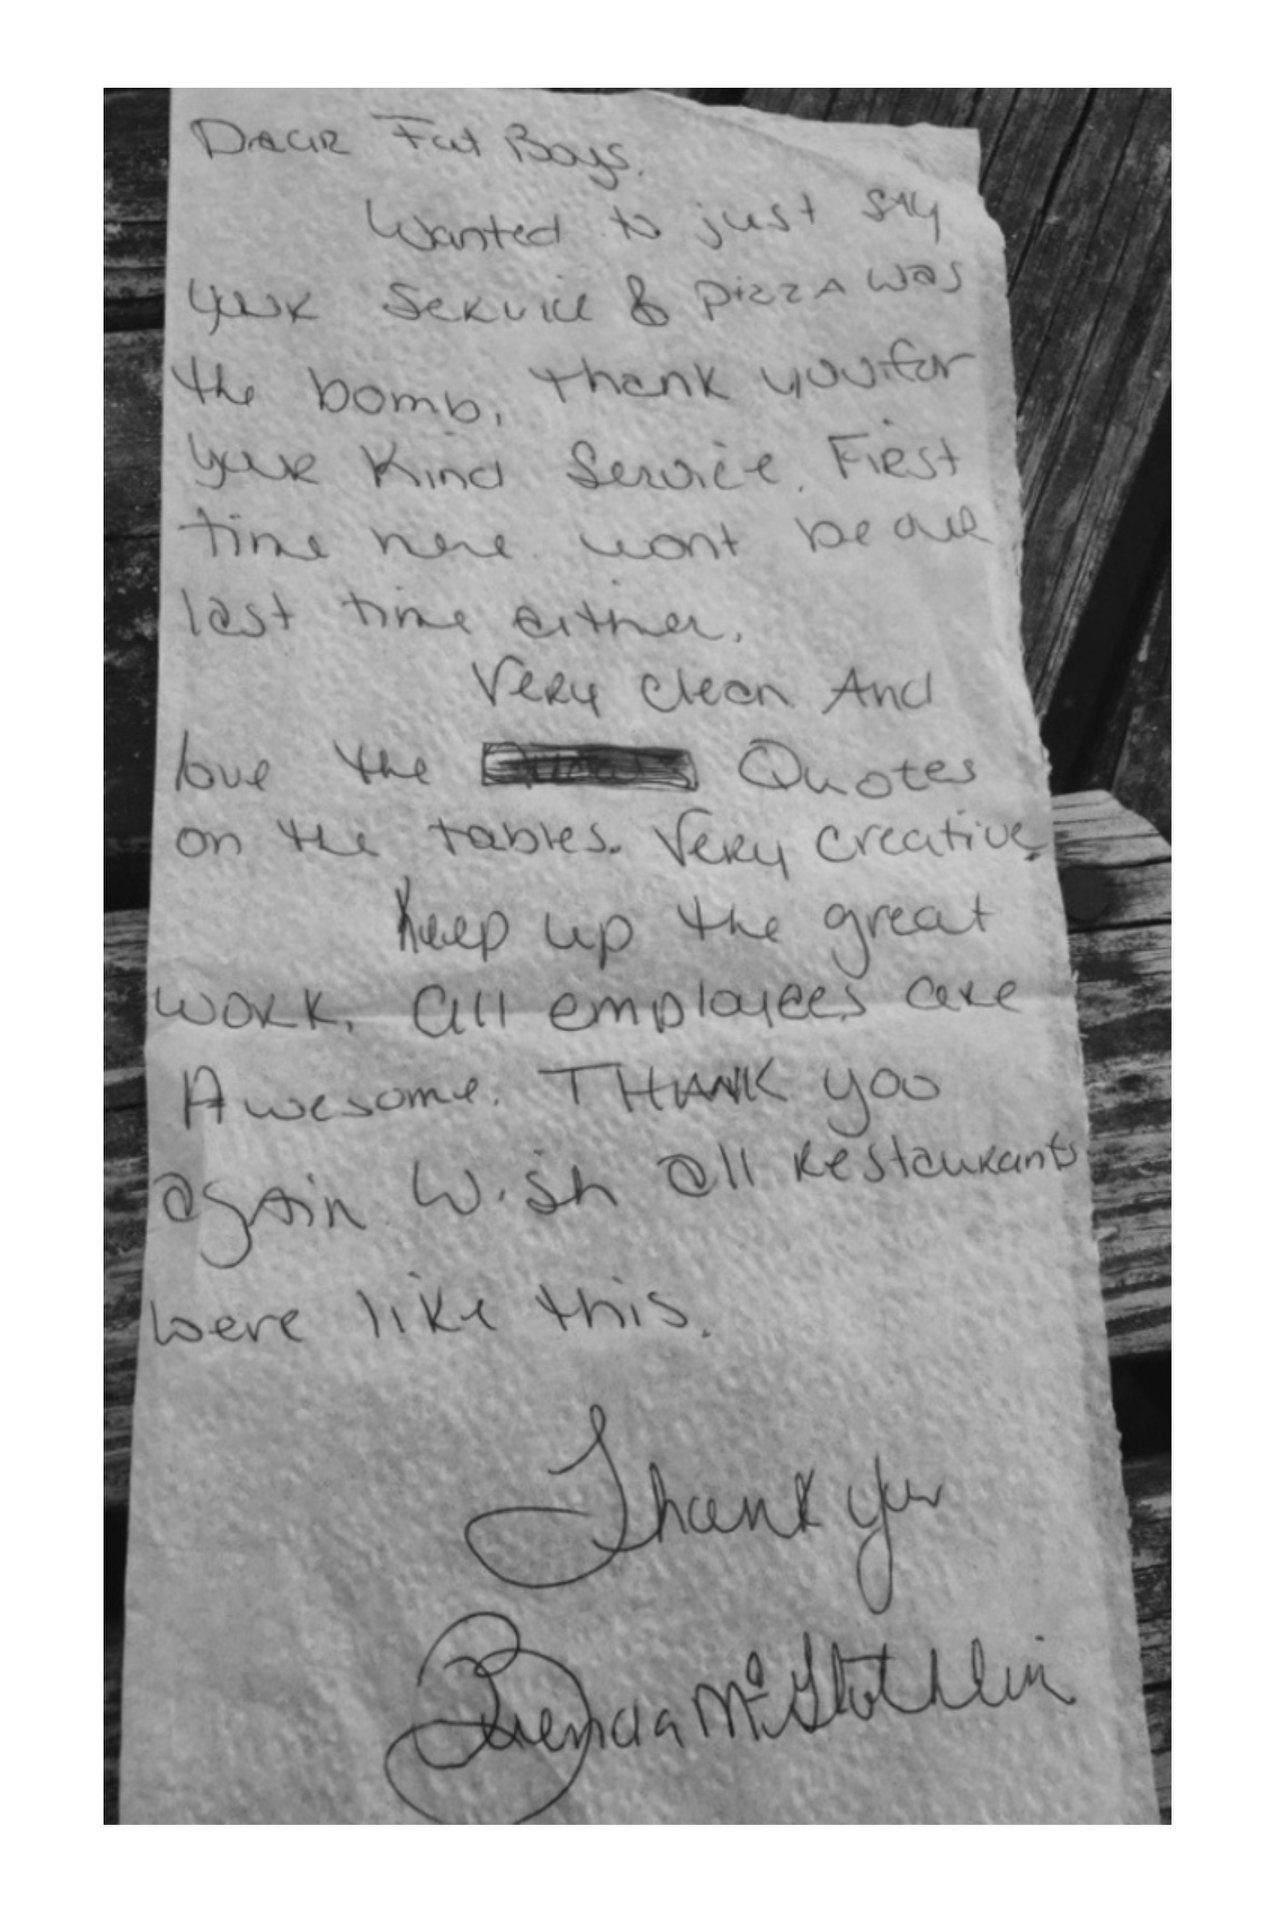 Dear Fat Boys.
Wanted to just say
your Service & pizza was
the bomb. thank you for
your Kind Service. First
time here wont be our
last time either.
Very clean And
love the Quotes
on the tables. Very creative.
Keep up the great
work. All employees are
Awesome. THANK you
again Wish all Restaurants
were like this.
Thank you
Brenda McGlothlin